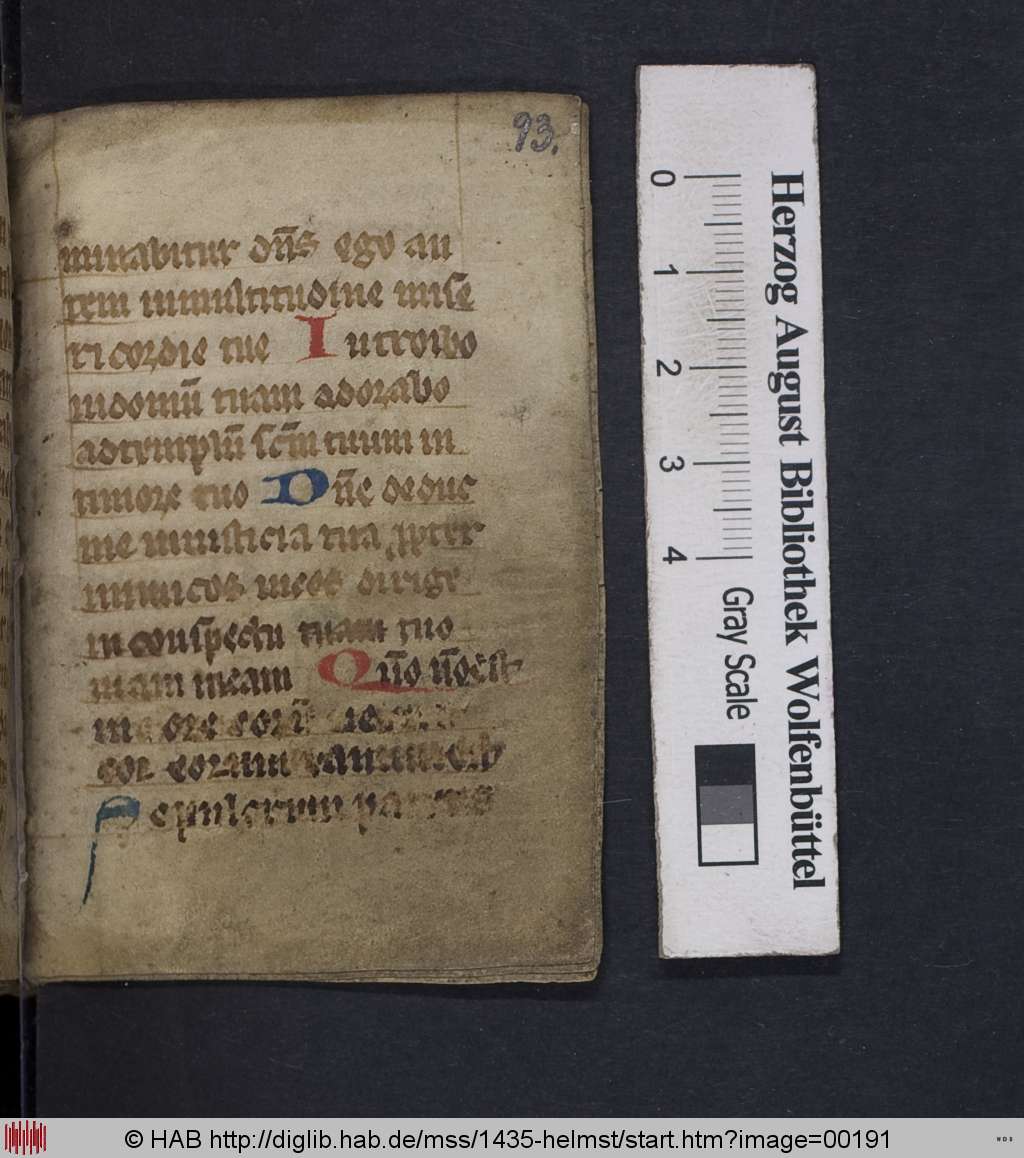 93.
minabitur dn̄s ego au
tem inmultitudine mise
ricordie tue Introibo
indomū tuam adorabo
adtemplū sc̄m tuum in
timore tuo Dn̄e deduc
me iniusticia tua ꝓpter
inimicos meos dirige
in conspectu tuam tuo
uiam meam Qn̄o n̄o est
in ore eorū
cor eorum
Sepulcrum patens
Herzog August Bibliothek Wolfenbüttel
0 1 2 3 4
Gray Scale
© HAB http://diglib.hab.de/mss/1435-helmst/start.htm?image=00191